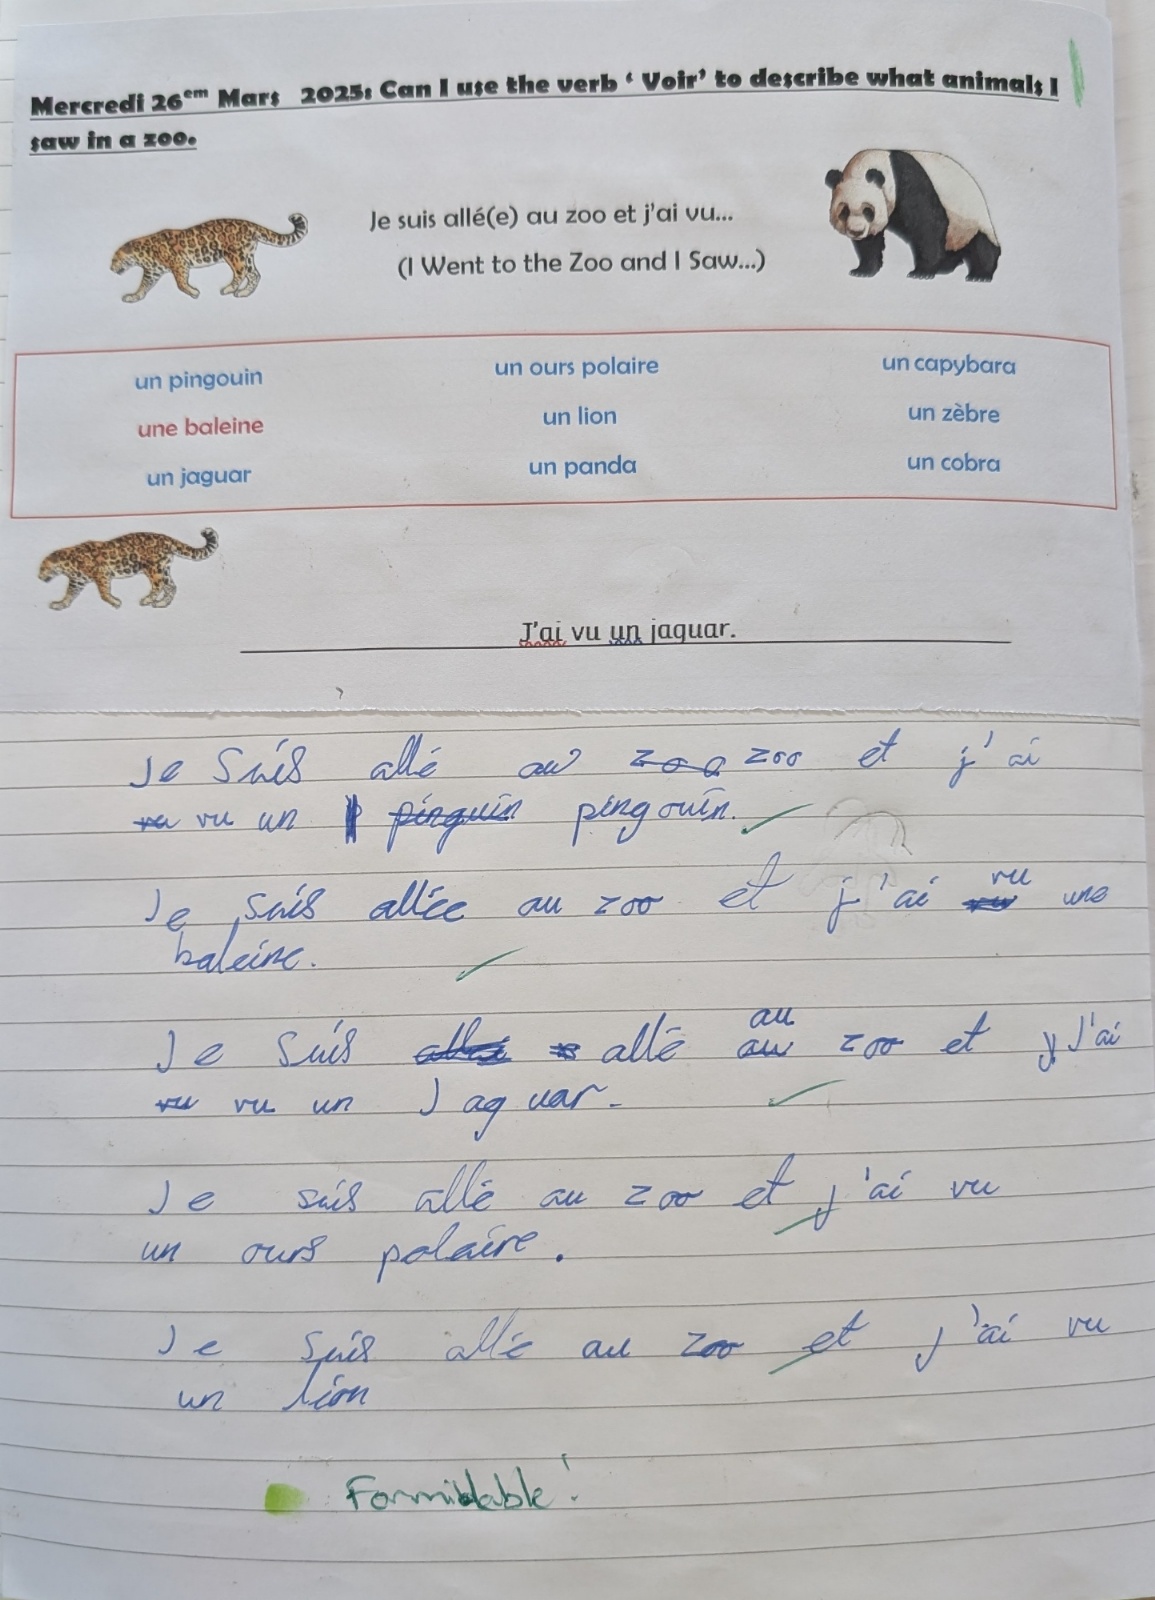 Mercredi 26em Mars 2025: Can I use the verb ‘ Voir’ to describe what animals I
saw in a zoo.
Je suis allé(e) au zoo et j’ai vu...
(I Went to the Zoo and I Saw...)
un pingouin un ours polaire un capybara
une baleine un lion un zèbre
un jaguar un panda un cobra
J’ai vu un jaguar.
Je Suis allé au zoo zoo et j'ai
vu un pinguin pingouin.
Je suis allée au zoo et j'ai vu une
baleine.
Je Suis allé au au zoo et J'ai
vu vu un Jaguar.
Je suis allé au zoo et j'ai vu
un ours polaire.
Je suis allé au zoo et j'ai vu
un lion
Formidable!